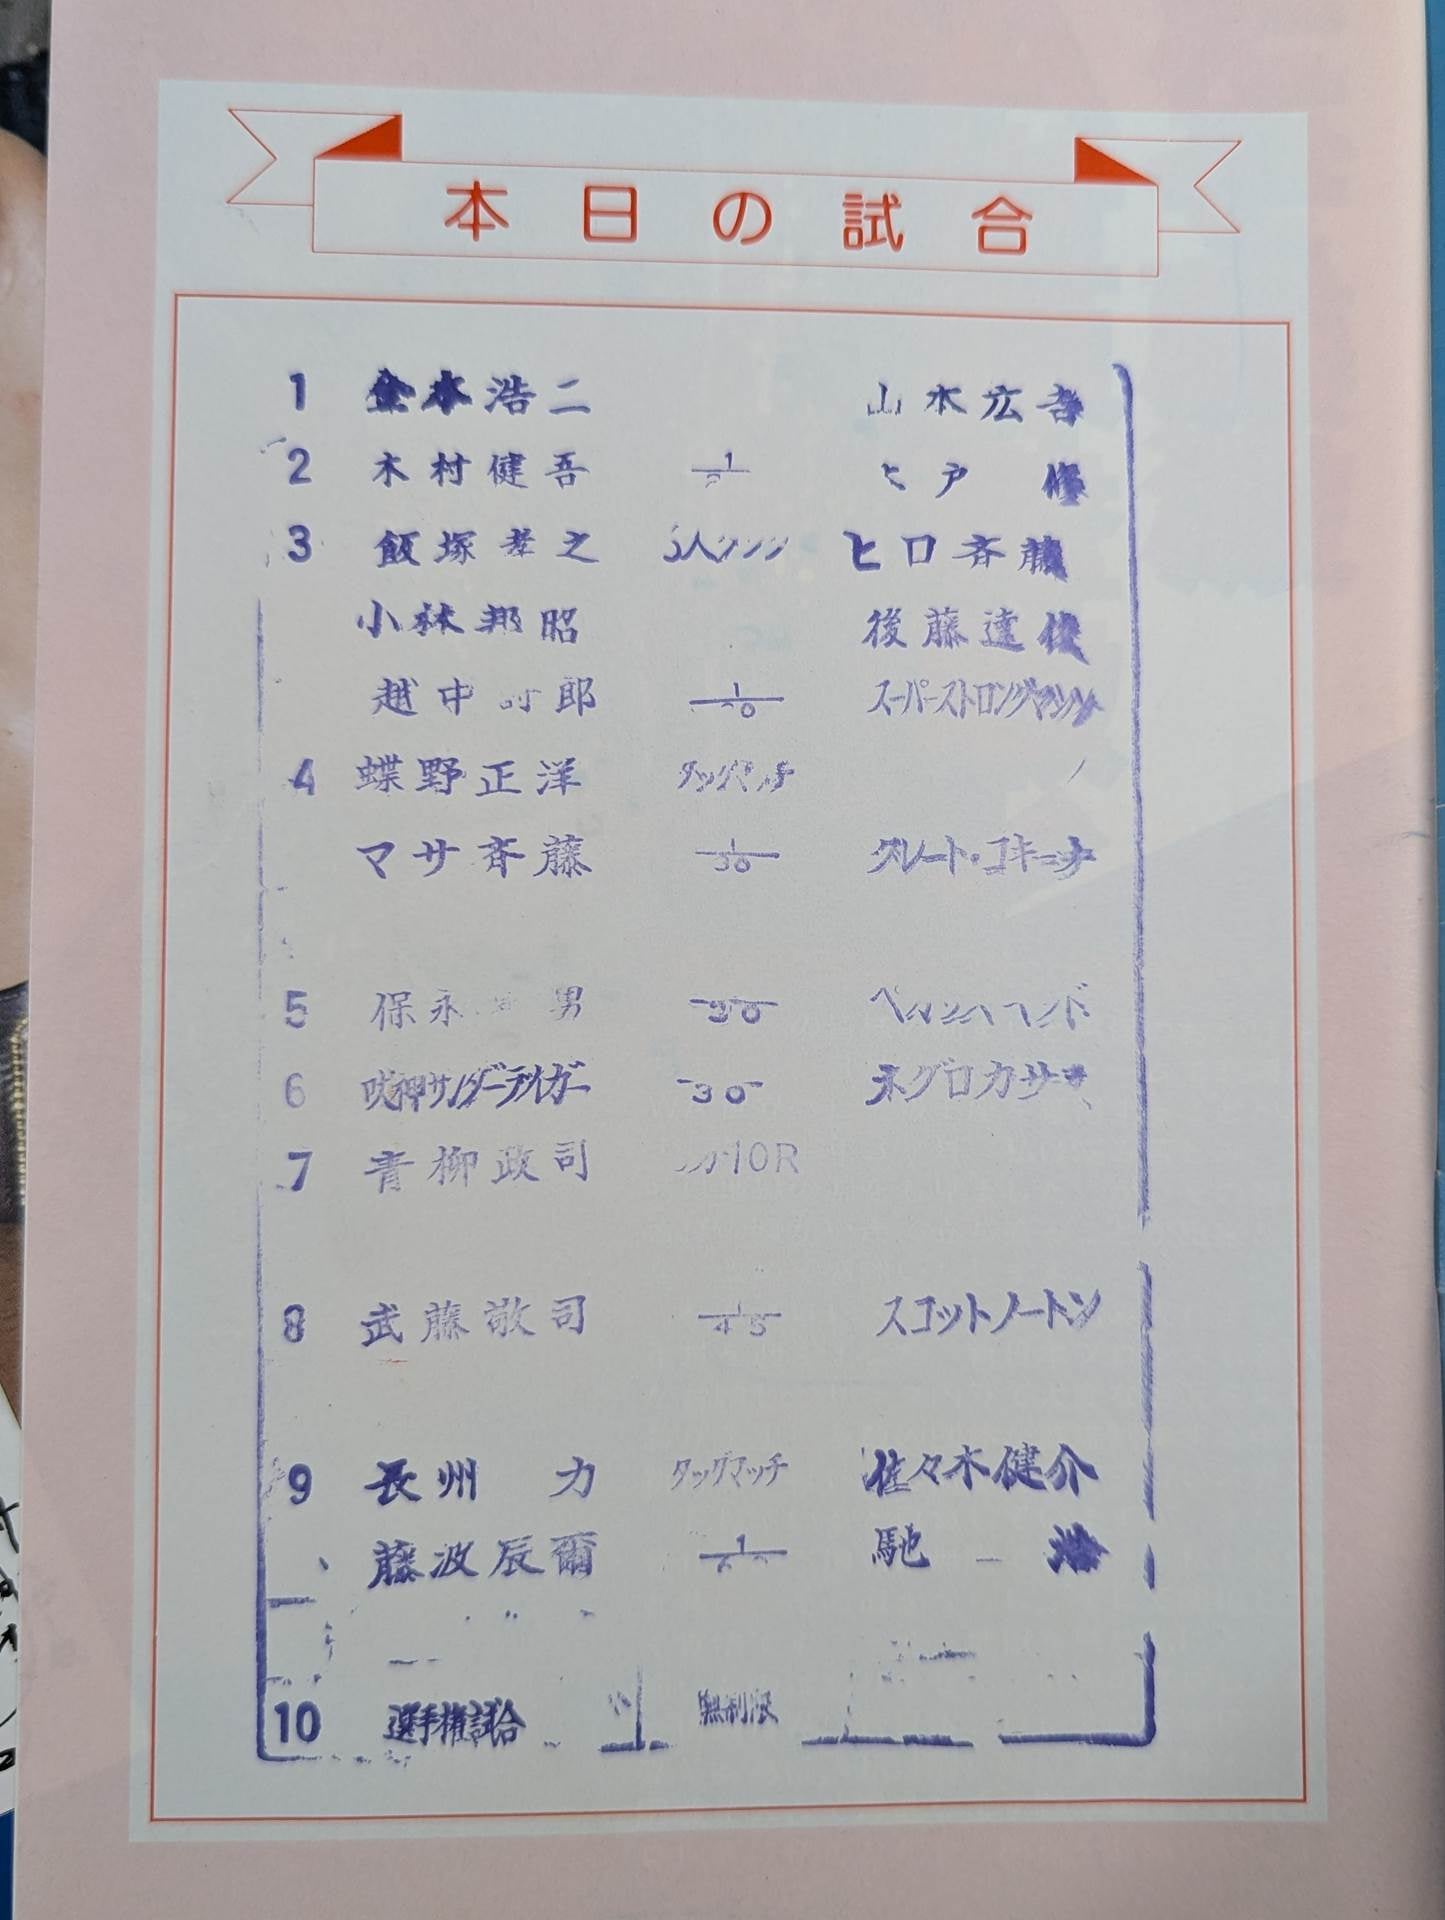 本日の試合
1 金本浩二 山本広吉
2 木村健吾 1 ヒト戸 修
3 飯塚孝之 人タッグ ヒロ斉藤
小林邦昭 後藤達俊
越中 郎 1 0 スーパーストロングマシン
4 蝶野正洋 タッグマッチ
マサ斉藤 1 30 グレート・コキーナ
5 保永 男 30
6 サンダーライガー 30 ネグロカサス
7 青柳政司 10R
8 武藤敬司 1 45 スコットノートン
9 長州 力 タッグマッチ 佐々木健介
藤波辰爾 1 馳 浩
10 選手権試合 無制限